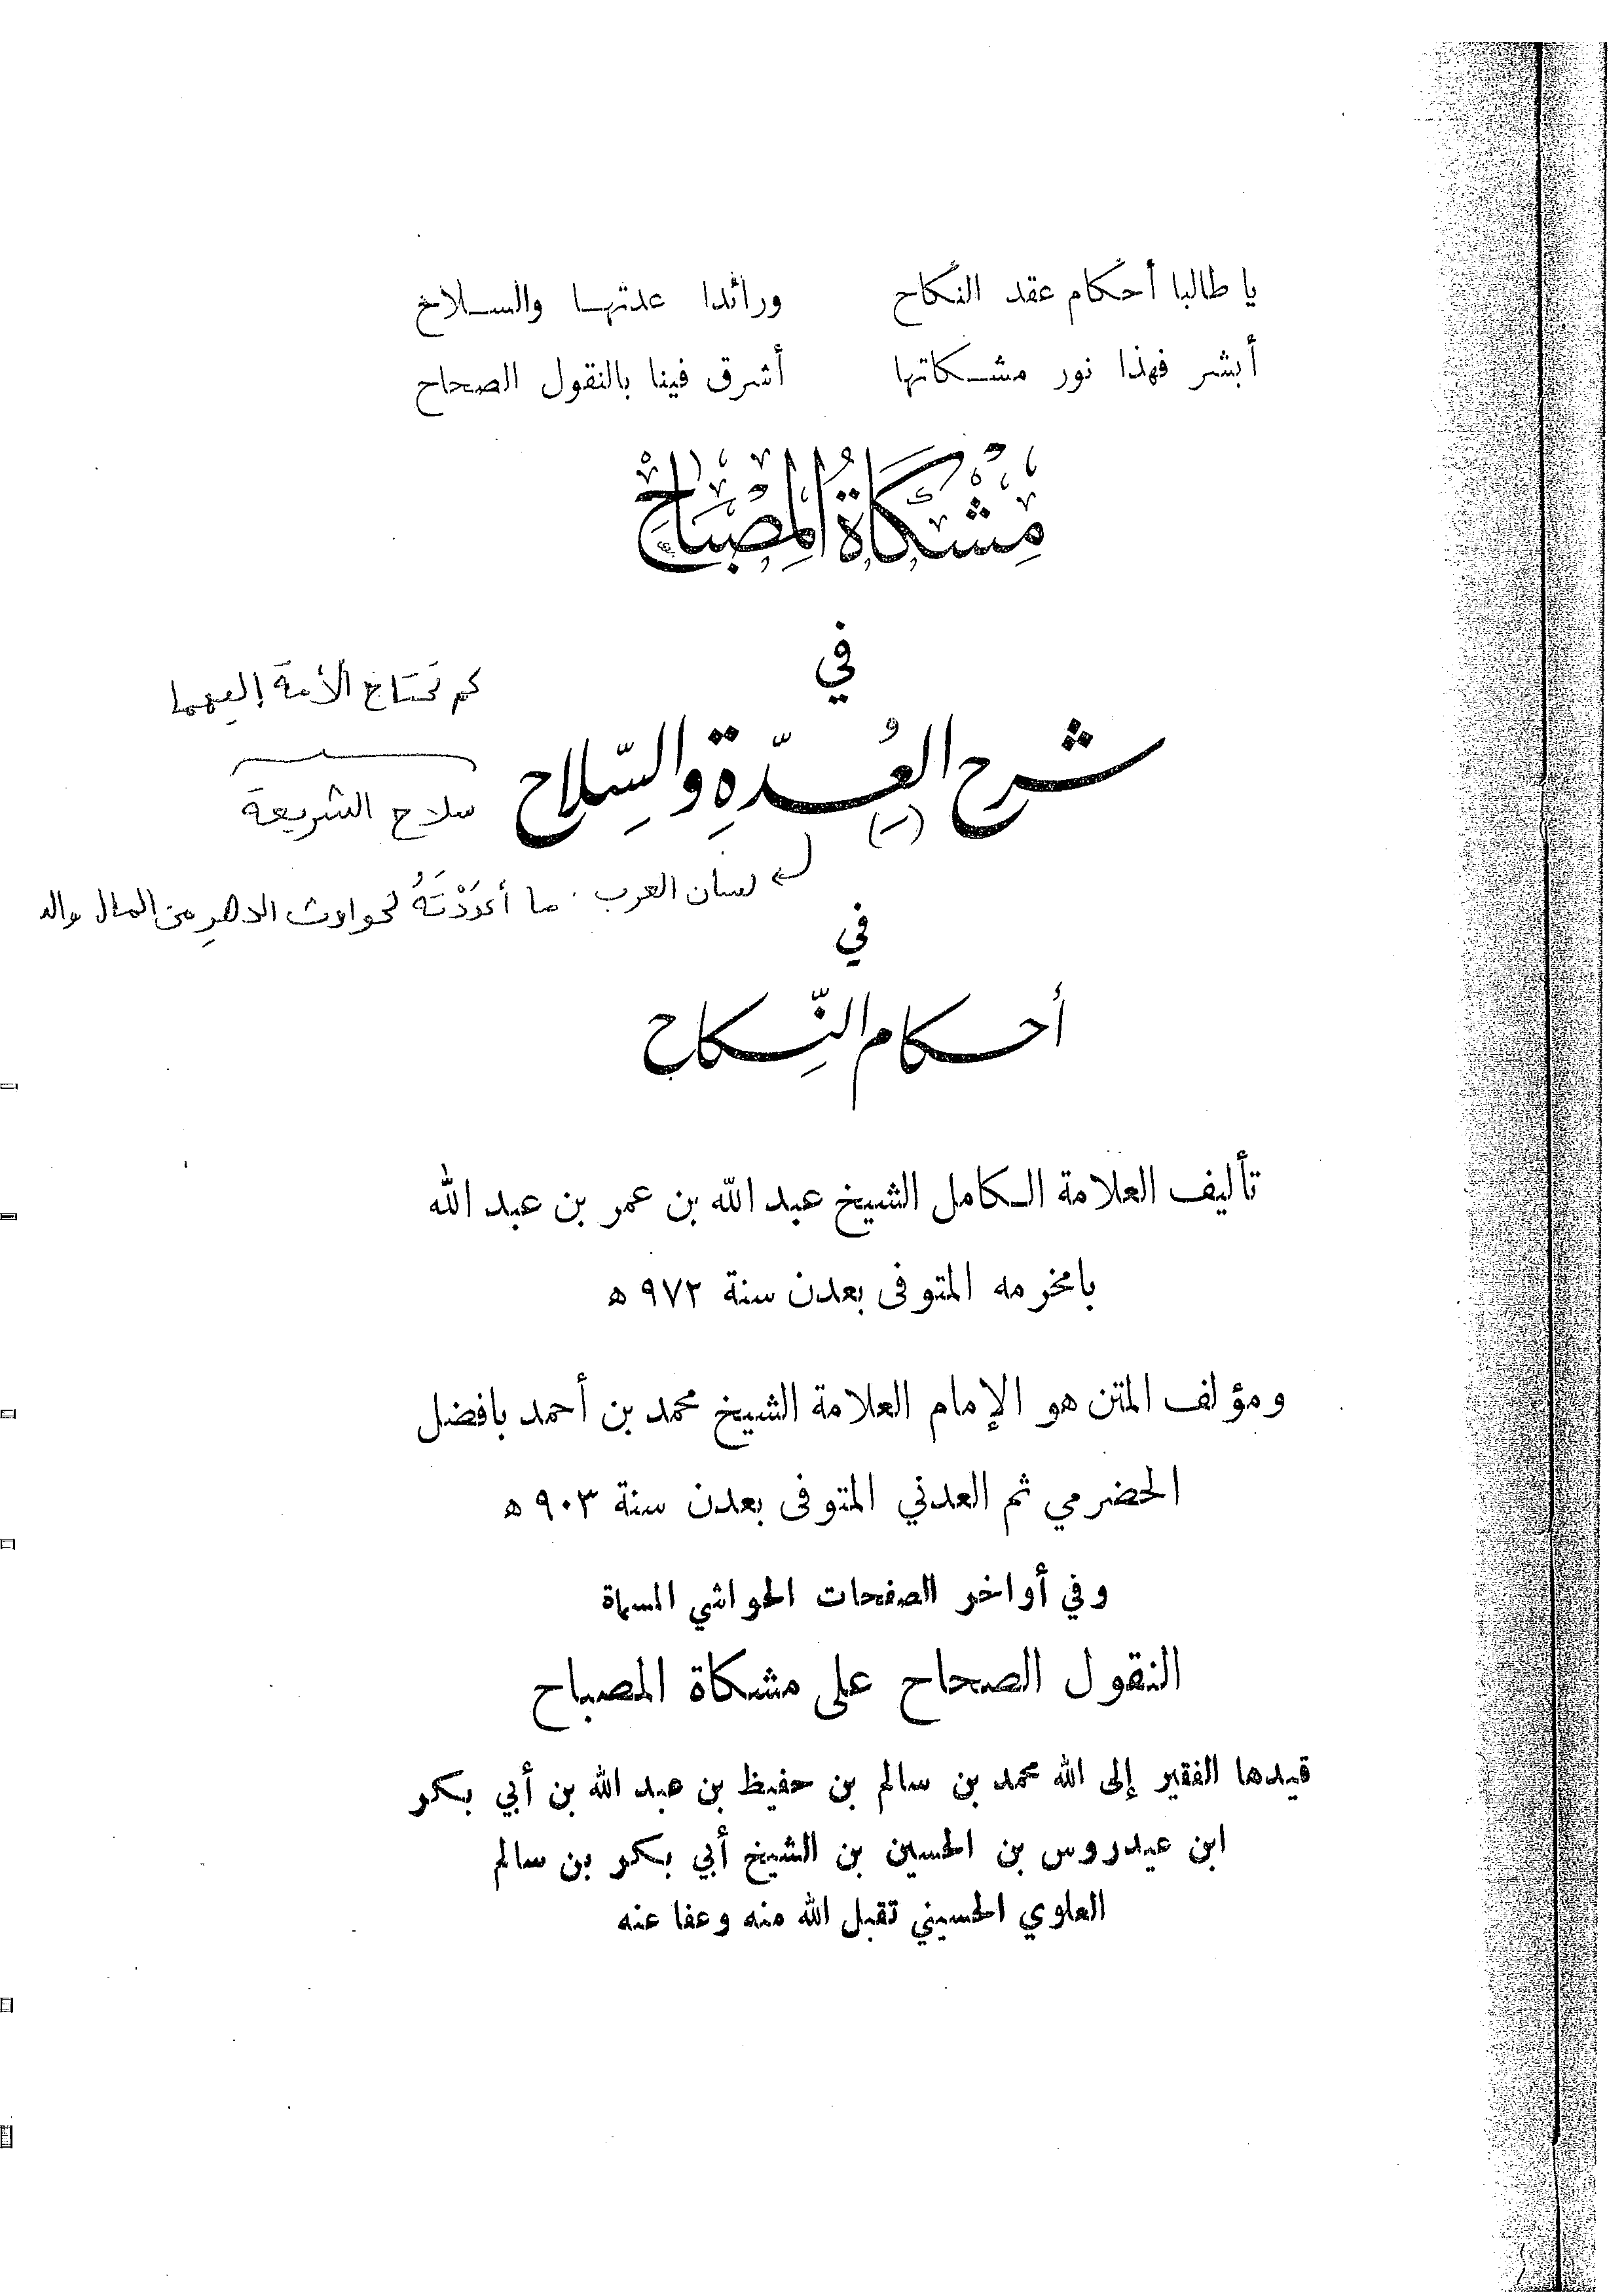 يا طالبا أحكام عقد النكاح ورائدا عدتها والسلاح
أبشر فهذا نور مشكاتها أشرق فينا بالنقول الصحاح
مِشْكَاةُ المِصْبَاحِ
في
كم تحتاج الأمة إليهما
شرح العُدّةِ والسِّلاح
سلاح الشريعة
لسان العرب . ما أعْدَدْتَهُ لحوادث الدهر من المال وال
في
أحكام النِّكاح
تأليف العلامة الكامل الشيخ عبد الله بن عمر بن عبد الله
بامخرمه المتوفى بعدن سنة ٩٧٢ ه
ومؤلف المتن هو الإمام العلامة الشيخ محمد بن أحمد بافضل
الحضرمي ثم العدني المتوفى بعدن سنة ٩٠٣ ه
وفي أواخر الصفحات الحواشي المسماة
النقول الصحاح على مشكاة المصباح
قيدها الفقير إلى الله محمد بن سالم بن حفيظ بن عبد الله بن أبي بكر
ابن عيدروس بن الحسين بن الشيخ أبي بكر بن سالم
العلوي الحسيني تقبل الله منه وعفا عنه